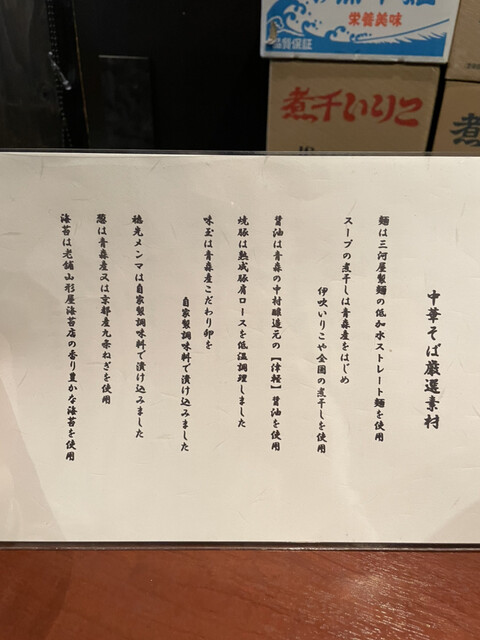 栄養美味
品質保証
煮干いりこ
煮
中華そば厳選素材
麺は三河屋製麺の低加水ストレート麺を使用
スープの煮干しは青森産をはじめ
伊吹いりこや全国の煮干しを使用
醤油は青森の中村醸造元の【津軽】醤油を使用
焼豚は熟成豚肩ロースを低温調理しました
味玉は青森産こだわり卵を
自家製調味料で漬け込みました
穂先メンマは自家製調味料で漬け込みました
葱は青森産又は京都産九条ねぎを使用
海苔は老舗山形屋海苔店の香り豊かな海苔を使用